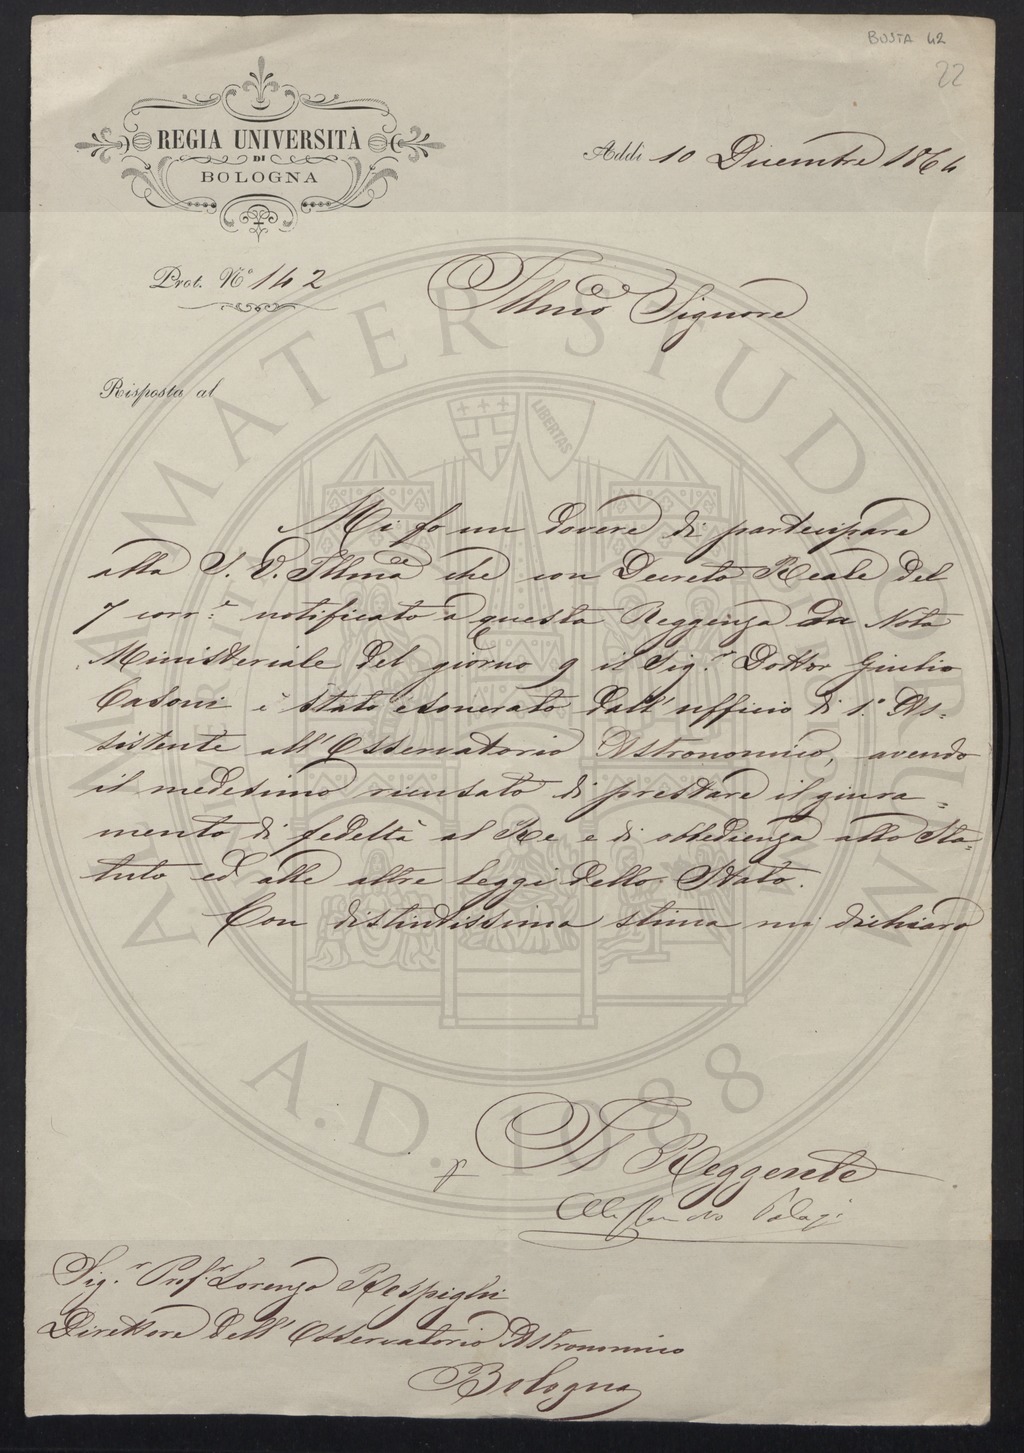 BUSTA 42
22
REGIA UNIVERSITÀ
DI
BOLOGNA
Addì 10 Dicembre 1864
Prot. N.° 142
Illmo Signore
Risposta al
Mi fo un dovere di partecipare
alla S. V. Illma che con Decreto Reale del
7 corr.e notificato a questa Reggenza da Nota
Ministeriale del giorno 9 il Sig.r Dottor Giulio
Casoni è stato esonerato dall'ufficio di 1.° As=
sistente all'Osservatorio Astronomico, avendo
il medesimo ricusato di prestare il giura=
mento di fedeltà al Re e di obbedienza allo Sta=
tuto ed alle altre leggi dello Stato.
Con distintissima stima mi dichiaro
Il Reggente
Alessandro Palagi
Sig.r Prof.r Lorenzo Respighi
Direttore dell'Osservatorio Astronomico
Bologna
ALMA MATER STUDIORUM
LIBERTAS
A.D. 1088